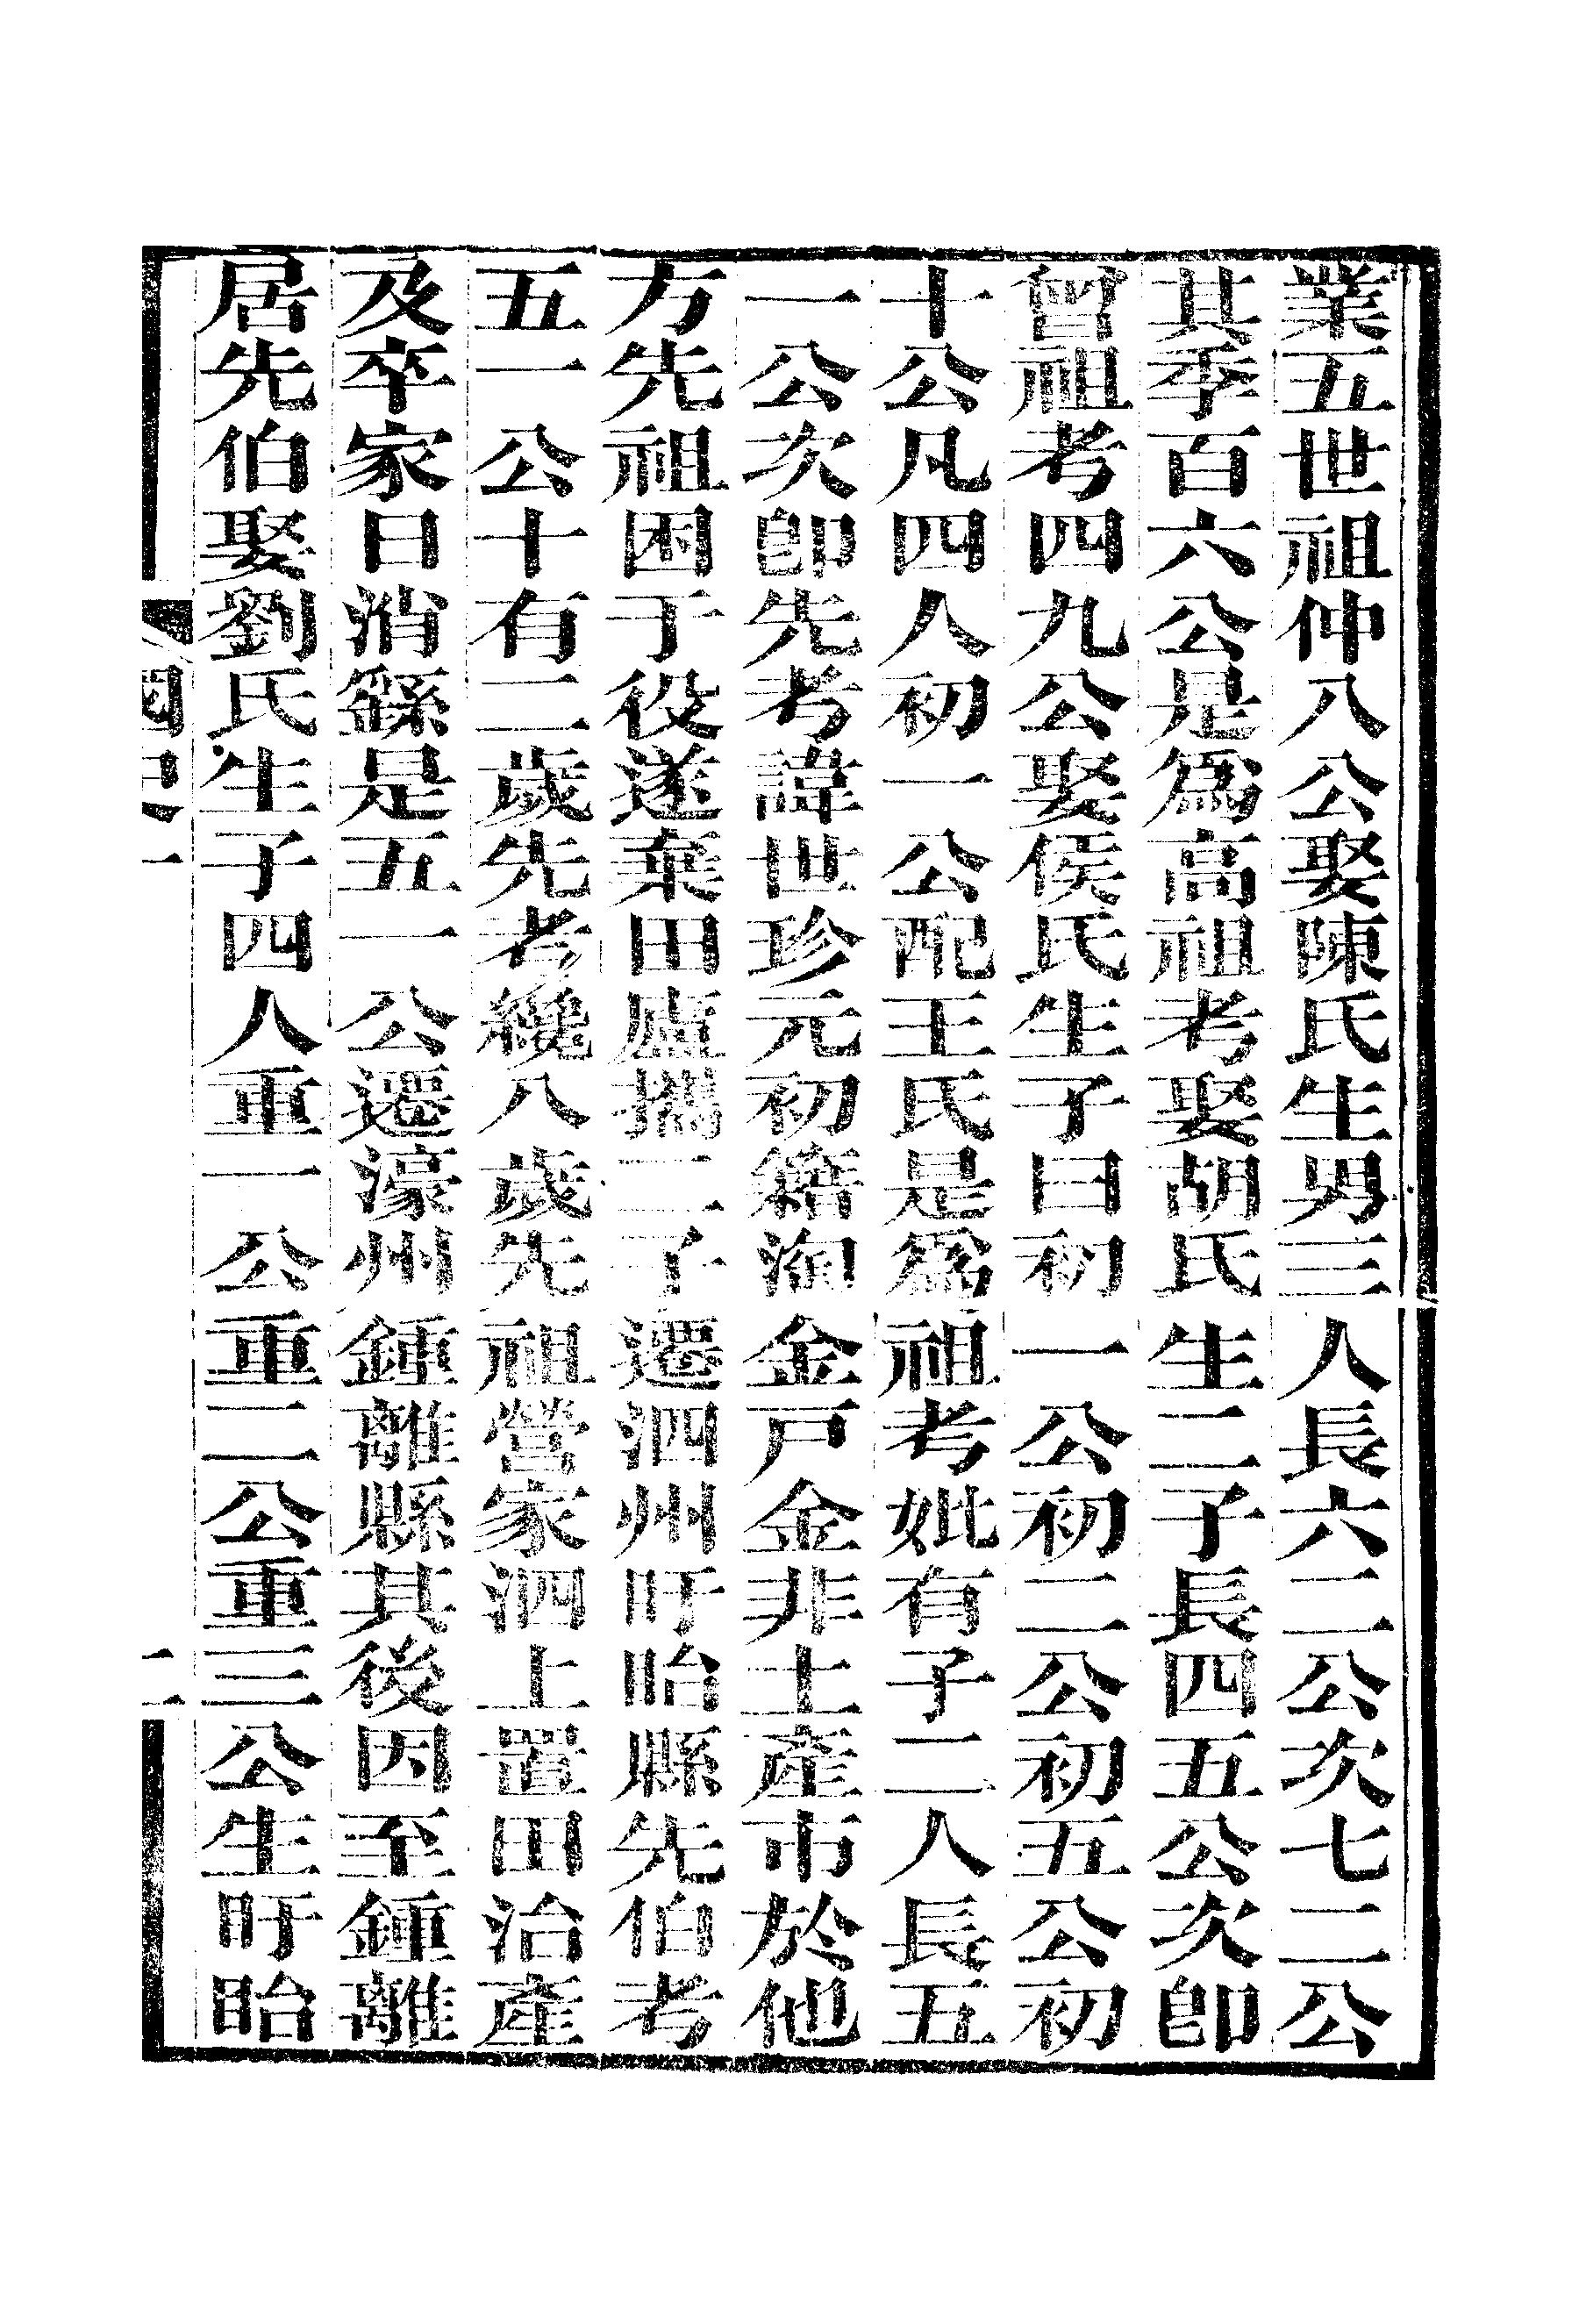 業五世祖仲八公娶陳氏生男三人長六二公次七二公
其季百六公是爲高祖考娶胡氏生二子長四五公次卽
曾祖考四九公娶侯氏生子曰初一公初二公初五公初
十公凡四人初一公配王氏是爲祖考妣有子二人長五
一公次卽先考諱世珍元初籍淘金戸金非土產市於他
方先祖困于役遂棄田廬攜二子遷泗州盱眙縣先伯考
五一公十有二歲先考纔八歲先祖營家泗上置田治產
及卒家日消繇是五一公遷濠州鍾離縣其後因至鍾離
居先伯娶劉氏生子四人重一公重二公重三公生盱眙
二